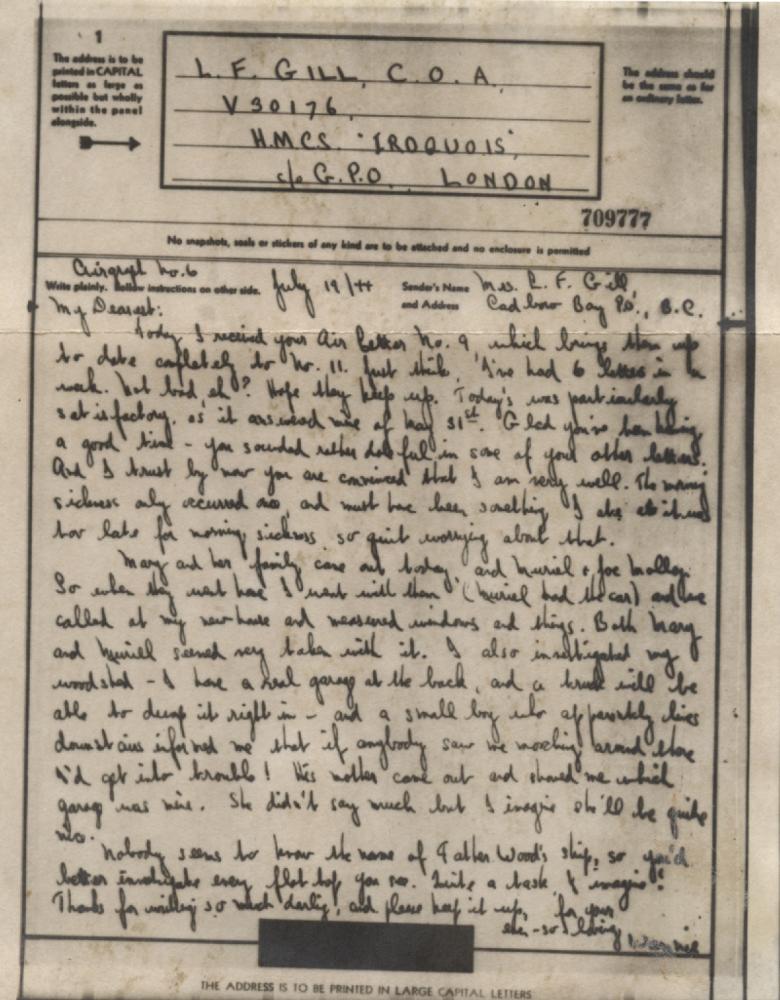 1
The address is to be
printed in CAPITAL
letters as large as
possible but wholly
within the panel
alongside.
L. F. GILL, C.O.A.,
V 30176,
H.M.C.S. "IROQUOIS",
c/o G.P.O., LONDON
The address should
be the same as for
an ordinary letter.
709777
No snapshots, seals or stickers of any kind are to be attached and no enclosure is permitted
Airgraph No. 6
Write plainly. Follow instructions on other side.
July 19/44
Sender's Name
and Address
Mrs. L. F. Gill,
Cadboro Bay P.O., B.C.
My Dearest:
Today I received your Air Letter No. 9, which brings them up
to date completely to No. 11. Just think, I've had 6 letters in a
week. Not bad, eh? Hope they keep up. Today's was particularly
satisfactory, as it answered mine of May 31st. Glad you've been having
a good time - you sounded rather doleful in some of your other letters.
And I trust by now you are convinced that I am very well. The morning
sickness only occurred once, and must have been something I ate, it was
too late for morning sickness so quit worrying about that.
Mary and her family came out today, and Muriel & Joe
So when they went home I went with them (Muriel had the car) and we
called at my new house and measured windows and things. Both Mary
and Muriel seemed very taken with it. I also investigated my
woodshed - I have a real garage at the back, and a truck will be
able to dump it right in - and a small boy who apparently lives
downstairs informed me that if anybody saw me around there
I'd get into trouble! His mother came out and showed me which
garage was mine. She didn't say much but I imagine she'll be quite
nice.
Nobody seems to know the name of Father Wood's ship, so you'd
better investigate every flat top you see. Quite a task, I imagine!
Thanks for writing so much darling, and please keep it up, for your
ever-so loving
THE ADDRESS IS TO BE PRINTED IN LARGE CAPITAL LETTERS